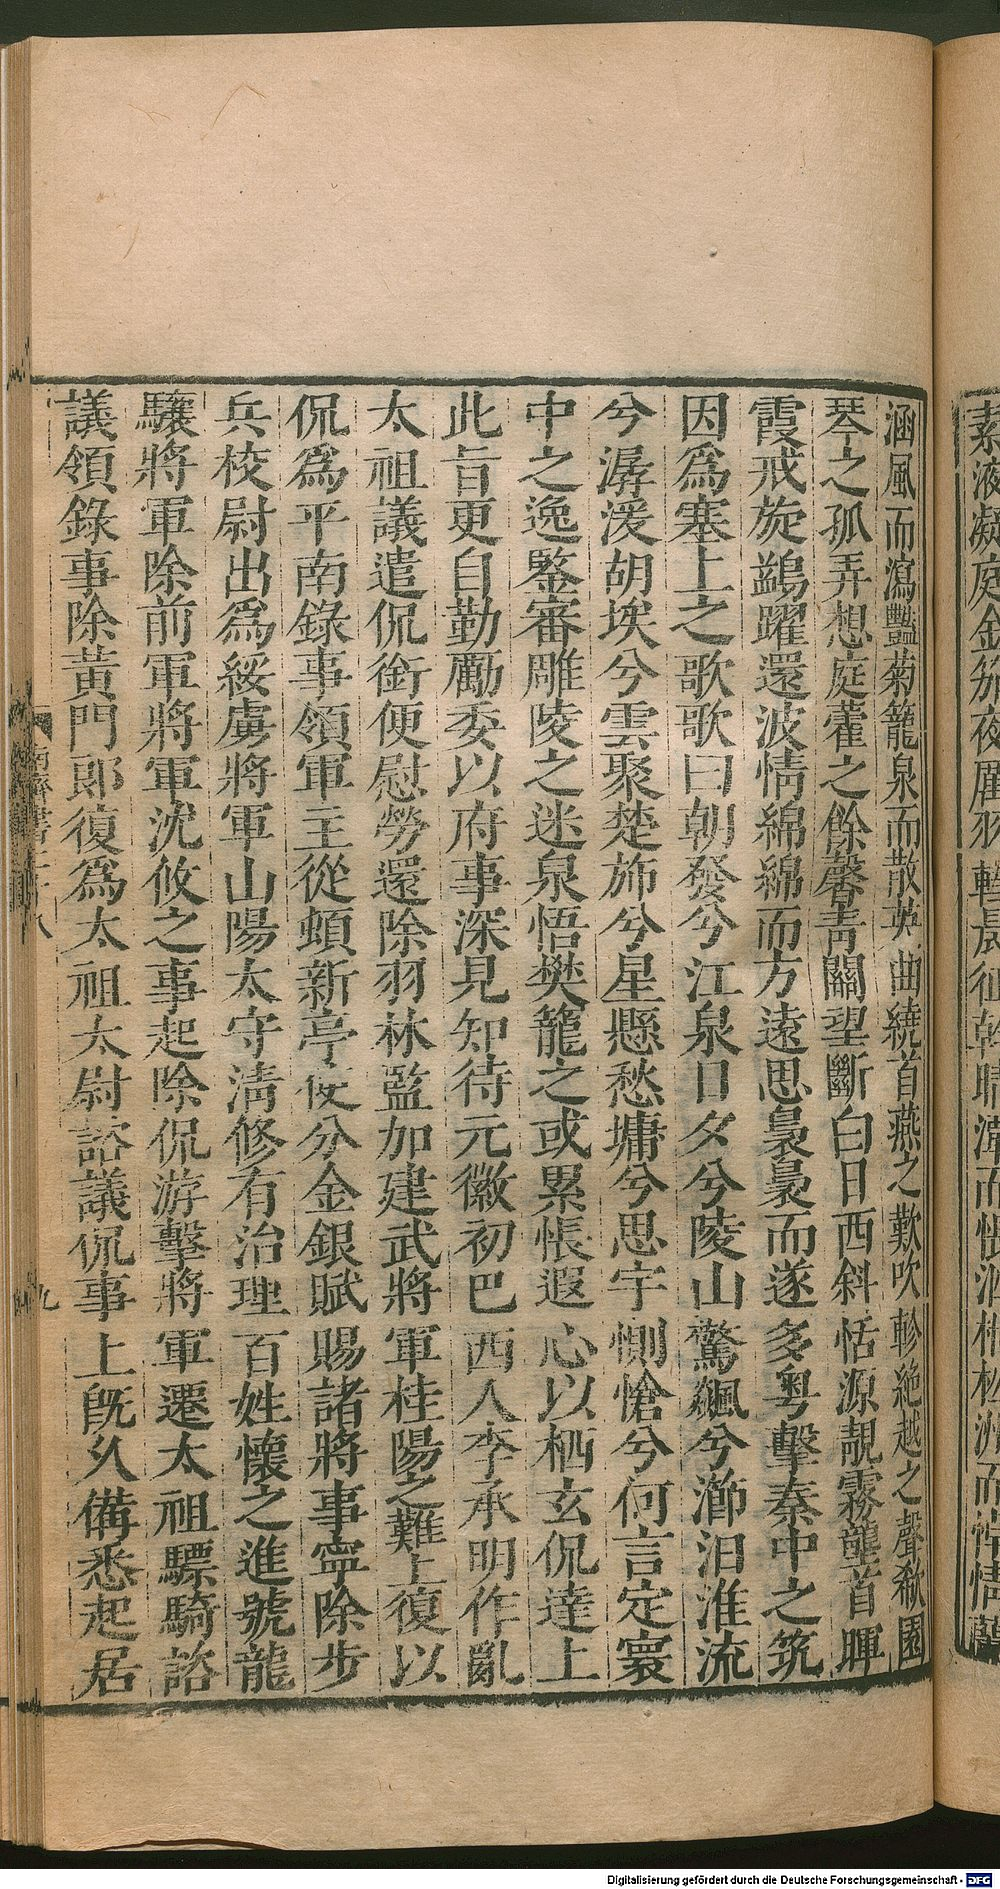 素液凝庭金笳夜厲羽轊晨征幹晴潭而悵泗枻松洲而悼情蘭
涵風而瀉豔菊籠泉而散英曲繞首燕之歎吹軫絕越之聲欷園
琴之孤弄想庭藿之餘馨靑關望斷白日西斜恬源靚霧壟首暉
霞戒旋鷁躍還波情綿綿而方遠思裊裊而遂多粵擊秦中之筑
因爲塞上之歌歌曰朝發兮江泉日夕兮陵山驚飆兮瀄汩淮流
兮潺湲胡埃兮雲聚楚斾兮星懸愁墉兮思宇惻愴兮何言定寰
中之逸鑒審雕陵之迷泉悟樊籠之或累悵遐心以栖玄侃達上
此旨更自勤勵委以府事深見知待元徽初巴西人李承明作亂
太祖議遣侃銜使慰勞還除羽林監加建武將軍桂陽之難上復以
侃爲平南錄事領軍主從頓新亭使分金銀賦賜諸將事寧除步
兵校尉出爲綏虜將軍山陽太守淸修有治理百姓懷之進號龍
驤將軍除前軍將軍沈攸之事起除侃游擊將軍遷太祖驃騎諮
議領錄事除黃門郎復爲太祖太尉諮議侃事上旣久備悉起居
南齊書二十八
九
Digitalisierung gefördert durch die Deutsche Forschungsgemeinschaft - DFG